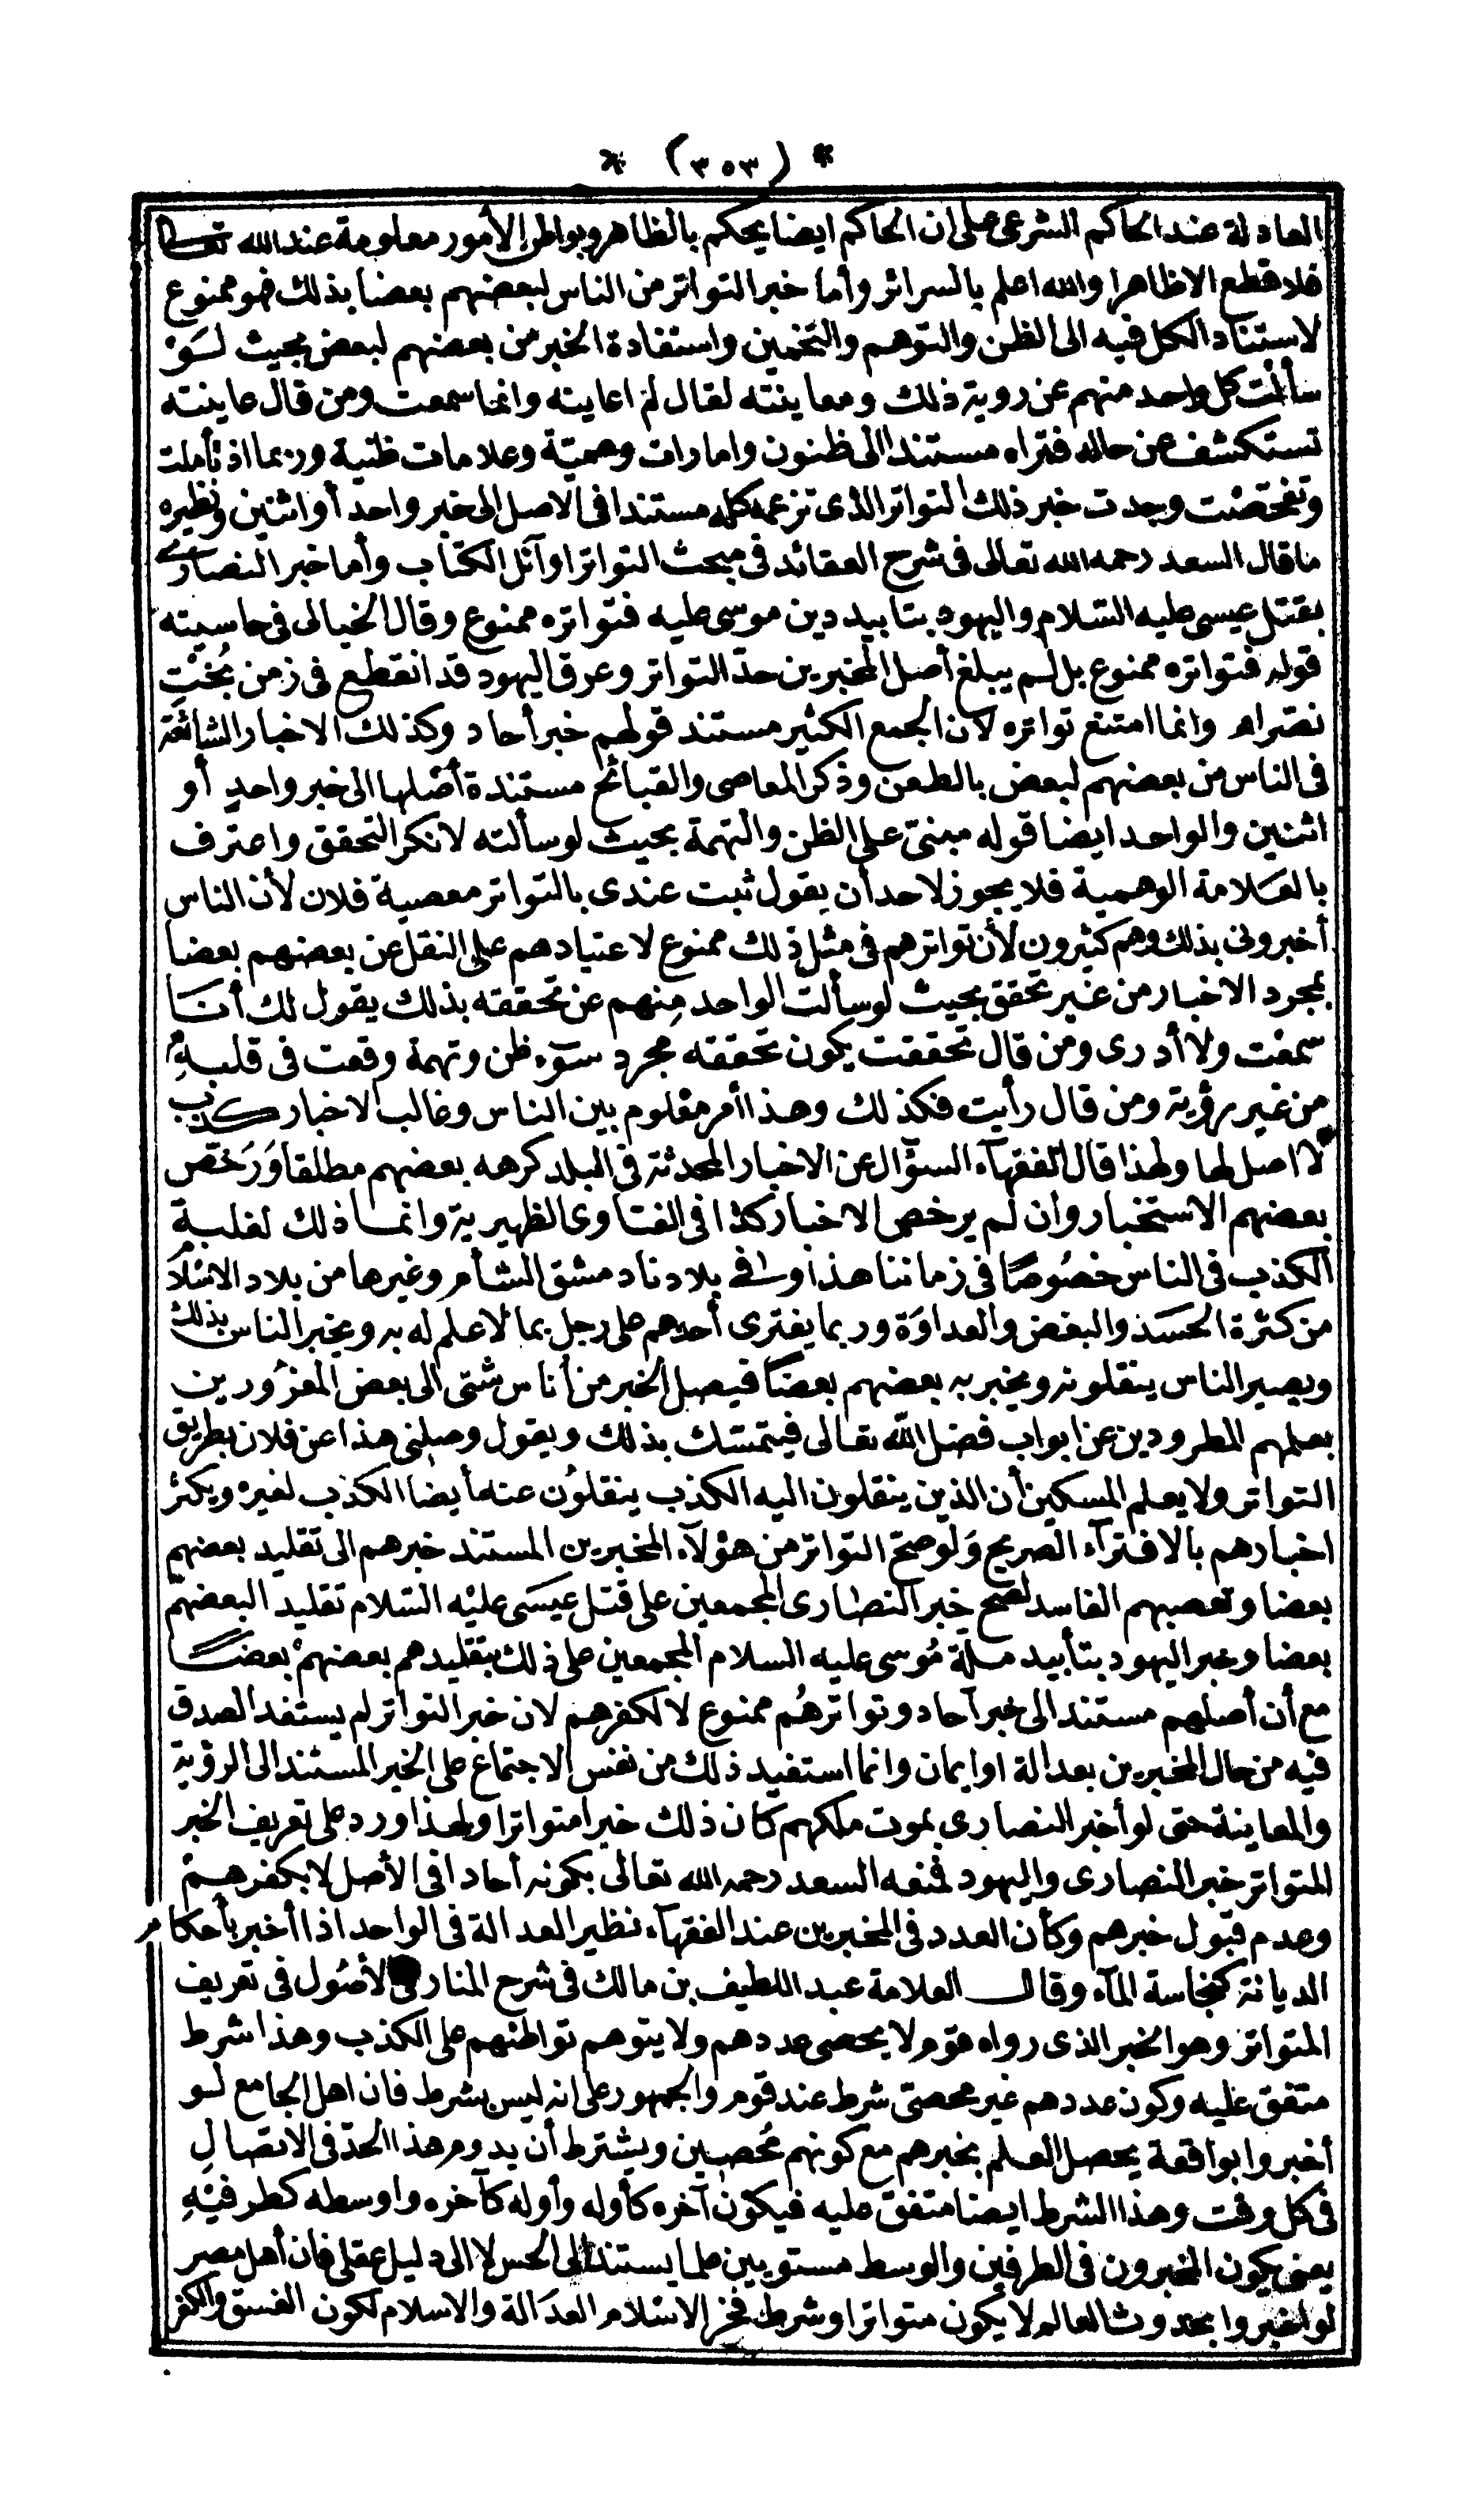 * (٣٥٣) *
العادلة عند الحاكم الشرعى على ان الحاكم ايضا يحكم بالظاهر وبواطن الأمور معلومة عند الله تعالى
فلا قطع الا ظاهرا والله اعلم بالسرائر وأما خبر التواتر من الناس لبعضهم بعضا بذلك فهو ممنوع
لاستناد الكل فيه الى الظن والتوهم والتخمين واستفادة الخبر من بعضهم لبعض بحيث لَوْ
سألت كل واحد منهم عن روية ذلك ومعاينته لقال لم اعاينه وانما سمعت ومن قال عاينته
تستكشف عن حاله فتراه مستندا الى ظنون وامارات وهمية وعلامات ظنية وربما اذ تأملت
وتفحّصت وجدت خبر ذلك التواتر الذى تزعمه كله مستندا فى الاصل الى خبر واحد أو اثنين ونظيره
ما قال السعد رحمه الله تعالى فى شرح العقائد فى مبحث التواتر اوآئل الكتاب وأما خبر النصارى
بقتل عيسى عليه السّلام واليهود بتابيد دين موسى عليه فتواتره ممنوع وقال الخيالى فى حاسيته
قوله فتواتره ممنوع بل لم يبلغ أصل المخبرين حدّ التواتر وعرق اليهود قد انقطع فى زمن بُخْتِ
نصّر اه وانما امتنع تواتره لان الجمع الكثير مستند قولهم خبر أحاد وكذلك الاخبار الشائعة
فى الناس من بعضهم لبعض بالطعن وذكر المعاصى والقبائح مستندة أصْلها الى خبر واحدٍ أو
اثنين والواحد ايضا قوله مبنىّ على الظن والتهمة بحيث لوسألته لانكر التحقق واعترف
بالعَلامة الوهمية فلا يجوز لاحد أن يقول ثبت عندى بالتواتر معصية فلان لأن الناس
أخبرونى بذلك وهم كثيرون لأن تواترهم فى مثل ذلك ممنوع لاعتيادهم على النقل عن بعضهم بعضا
بمجرد الاخبار من غير تحقق بحيث لوسألت الواحد مِنهم عن تحققه بذلك يقول لك أنَا
سمعْت ولا أدرى ومن قال تحققت يكون تحققه مجرد سوٓء ظن وتهمة وقعت فى قلبهِ
من غير رؤية ومن قال رأيت فكذلك وهذا أمر مغلوم بين الناس وغالب الاخبار كذب
لا اصل لها ولهذا قال الفقهآء السؤال عن الاخبار المحدثة فى البلد كرهه بعضهم مطلقا وَرَخّص
بعضهم الاستخبار وان لم يرخص الاخبار كذا فى الفتاوى الظهيرية وانما ذلك لغلبة
الكذب فى الناس خصُوصًا فى زماننا هذا وفى بلادنا دمشق الشأم وغيرها من بلاد الاسْلاَ
من كثرة الحسَد والبغض والعداوَة وربما يفترى أحدهم على رجل بما لا علم له به ويخبر الناس بذلك
ويصير الناس ينقلونه ويخبر به بعضهم بعضًا فيصل الخبر من أناس شتى الى بعض المغرُورين
بعلمهم المطرودين عن ابواب فضل الله تعالى فيتمسّك بذلك ويقول وصلنى هذا عن فلان بطريق
التواتر ولا يعلم المسكين أن الذين ينقلون اليه الكذب ينقلوُن عنه أيضا الكذب لغيره ويكثر
اخبارهم بالافترآء الصريح وَلو صحّ التواتر من هؤلآء المخبرين المستند خبرهم الى تقليد بعضهم
بعضا وتعصبهم الفاسد لصح خبر النصارى المجمعين على قتل عيسَى عليْه السّلام تقليد البعضهمْ
بعضا وخبر اليهود بتأبيد ملة مُوسى عليه السلام المجمعين على ذلك بتقليدهم بعضهمْ بعضًا
مع أن أصلهم مستند الى خبر آحاد وتواترهُم ممنوع لا لكفرهم لان خبر التواتر لم يستفد الصدق
فيه من حال المخبرين بعدالة او ايمان وانما استفيد ذلك من نفس الاجتماع على الخبر المستند الى الرؤية
والمعاينة حتى لو أخبر النصارى بموت ملكهم كان ذلك خبرا متواترا ولهذا ورد على تعريف الخبر
المتواتر خبر النصارى واليهود فمنعه السعد رحمه الله تعالى بكونه أحادا فى الأصل لا بكفرهمْ
وعدم قبول خبرهم وكأن العدد فى المخبرين عند الفقهآء نظير العدالة فى الواحد اذا أخبر بأحكام
الديانة كنجاسة المآء وقال العلامة عبد اللطيف بن مالك فى شرح المنار فى الأصُول فى تعريف
المتواتر وهو الخبر الذى رواه قوم لا يحصى عددهم ولا يتوهم تواطئهم على الكذب وهذا شرط
متفق عليه وكون عددهم غير محصىّ شرط عند قوم والجمهور على انه ليس بشرط فان اهل الجامع لو
أخبروا بواقعة يحصل العلم بخبرهم مع كونهم مُحصِين ويشترط أن يدوم هذا الحدّ فى الاتصالِ
فى كل وقت وهذا الشرط ايضا متفق عليه فيكون آخره كأوله وأوله كآخره واوسطه كطرفيْهِ
يعنى يكون المخبرون فى الطرفين والوسط مستويين علما يستند الى الحس لا الى دليل عقلى فان أهل مصر
لو اخبروا بحدوث العالم لا يكون متواترا وشرط فخر الاسلام العدَالة والاسلام لكون الفسق والكفر